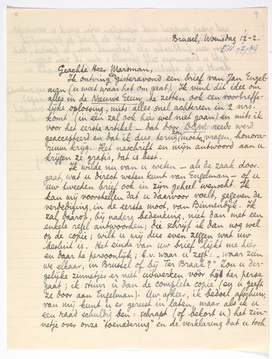 Brussel, Woensdag 12-2.
Geachte Heer Marsman,
Ik ontving gisteravond een brief van Jan Engel-
man (u weet waar het om gaat). Ik vind die idee om
alles in de Nieuwe Eeuw te zetten ook een voortreffe-
lijke oplossing, mits alles snel achtereen in 2 nrs.
komt (in één zal ook hier wel niet gaan) en mits ik
voor het eerste artikel - dat door D.G.W. reeds werd
geaccepteerd en dat ik dus terug vragen, honora-
rium krijg. Het naschrift en mijn antwoord aan u
krijgen ze gratis, dat is best.
Ik wilde nu van u weten - als de zaak door-
gaat, wat u direct weten kunt van Engelman - of u
uw tweeden brief ook in zijn geheel wenscht. Ik
kan mij voorstellen dat u daarvoor voelt, gegeven de
verdediging, in de serie moos, van Binnendijk. Ik
zal daarop, bij nadere bedenking, niet dan met een
enkele regel antwoorden; die schrijf ik dan nog wel
op de copie; wilt u mij dus even zeggen wat uw
besluit is. Het einde van uw brief lijkt me hier
en daar te persoonlijk; b.v. waar u zegt: "waar zien
we elkaar, in Brussel of bij Ter Braak?" Zou u der-
gelijke zinnetjes er niet uitwerken voor het ter perse
gaat; ik stuur u dan de complete copie (en u geeft
ze door aan Engelman).
van mij kunt u er gerust in laten, maar als ik u
een raad schuldig ben: schrapt (of bekort) u het zin-
netje over onze "toenadering" en de verklaring dat u toch